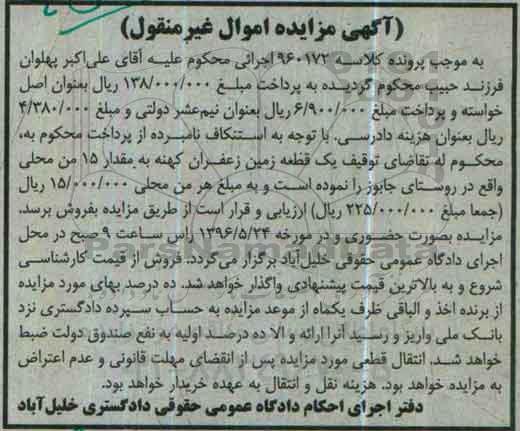 (آگهی مزایده اموال غیرمنقول)
به موجب پرونده کلاسه ۹۶۰۱۷۲ اجرائی محکوم علیه آقای علی‌اکبر پهلوان
فرزند حبیب محکوم گردیده به پرداخت مبلغ ۱۳۸/۰۰۰/۰۰۰ ریال بعنوان اصل
خواسته و پرداخت مبلغ ۶/۹۰۰/۰۰۰ ریال بعنوان نیم‌عشر دولتی و مبلغ ۴/۳۸۰/۰۰۰
ریال بعنوان هزینه دادرسی. با توجه به استنکاف نامبرده از پرداخت محکوم به،
محکوم له تقاضای توقیف یک قطعه زمین زعفران کهنه به مقدار ۱۵ من محلی
واقع در روستای جابوز را نموده است و به مبلغ هر من محلی ۱۵/۰۰۰/۰۰۰ ریال
(جمعا مبلغ ۲۲۵/۰۰۰/۰۰۰ ریال) ارزیابی و قرار است از طریق مزایده بفروش برسد.
مزایده بصورت حضوری و در مورخه ۱۳۹۶/۵/۲۴ راس ساعت ۹ صبح در محل
اجرای دادگاه عمومی حقوقی خلیل‌آباد برگزار می‌گردد. فروش از قیمت کارشناسی
شروع و به بالاترین قیمت پیشنهادی واگذار خواهد شد. ده درصد بهای مورد مزایده
از برنده اخذ و الباقی ظرف یکماه از موعد مزایده به حساب سپرده دادگستری نزد
بانک ملی واریز و رسید آنرا ارائه و الا ده درصد اولیه به نفع صندوق دولت ضبط
خواهد شد. انتقال قطعی مورد مزایده پس از انقضای مهلت قانونی و عدم اعتراض
به مزایده خواهد بود. هزینه نقل و انتقال به عهده خریدار خواهد بود.
دفتر اجرای احکام دادگاه عمومی حقوقی دادگستری خلیل‌آباد